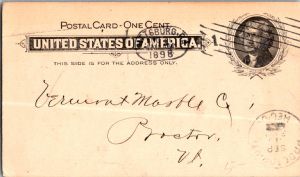 POSTAL CARD - ONE CENT.
UNITED STATES OF AMERICA.
THIS SIDE IS FOR THE ADDRESS ONLY.
1898
1
Vermont Marble Co,
Proctor
Vt.
REC'D
SEP